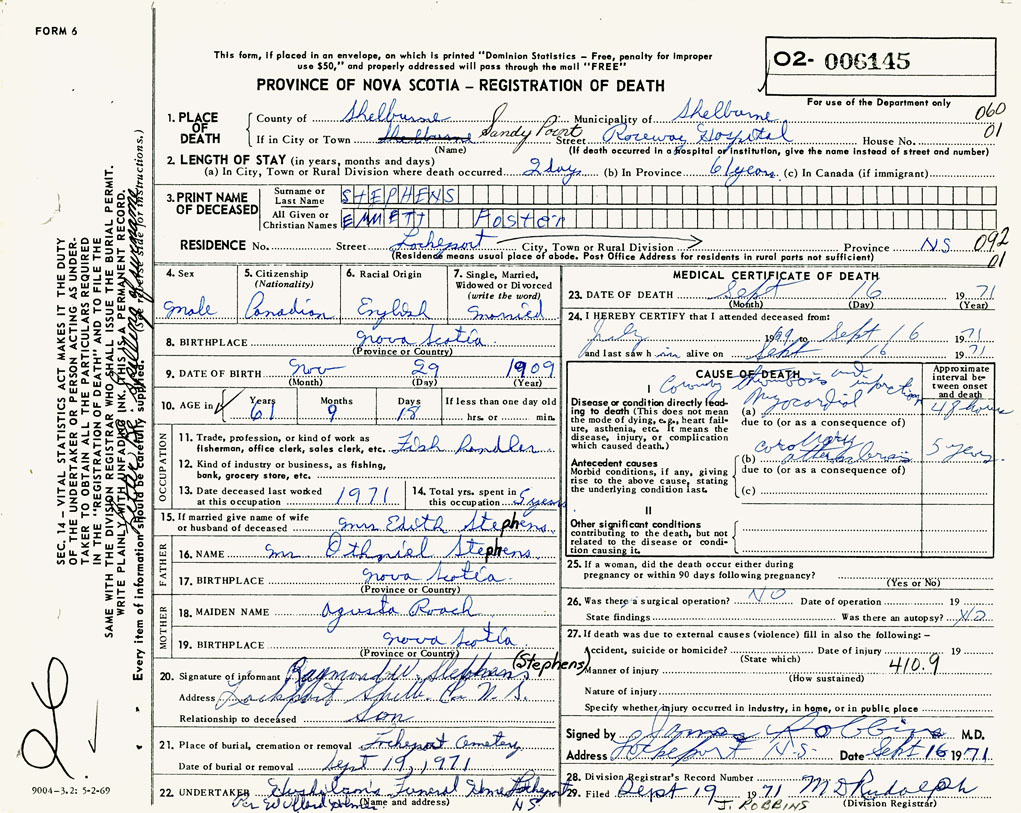 FORM 6
This form, if placed in an envelope, on which is printed "Dominion Statistics – Free, penalty for improper
use $50," and properly addressed will pass through the mail "FREE"
PROVINCE OF NOVA SCOTIA – REGISTRATION OF DEATH
02- 006145
For use of the Department only
060
01
1. PLACE OF DEATH
County of Shelburne Municipality of Shelburne
If in City or Town Shelburne Sandy Point Street Roseway Hospital House No.
(Name) (If death occurred in a hospital or institution, give the name instead of street and number)
2. LENGTH OF STAY (in years, months and days)
(a) In City, Town or Rural Division where death occurred 2 days (b) In Province 61 years (c) In Canada (if immigrant)
3. PRINT NAME OF DECEASED
Surname or Last Name STEPHENS
All Given or Christian Names EMMETT Foster
RESIDENCE No. Street Lockeport City, Town or Rural Division Province NS 092
01
(Residence means usual place of abode. Post Office Address for residents in rural parts not sufficient)
4. Sex
male
5. Citizenship
(Nationality)
Canadian
6. Racial Origin
English
7. Single, Married,
Widowed or Divorced
(write the word)
married
8. BIRTHPLACE Nova Scotia
(Province or Country)
9. DATE OF BIRTH Nov 29 1909
(Month) (Day) (Year)
10. AGE in
Years Months Days If less than one day old
61 9 18 hrs. or min.
OCCUPATION
11. Trade, profession, or kind of work as
fisherman, office clerk, sales clerk, etc. Fish handler
12. Kind of industry or business, as fishing,
bank, grocery store, etc.
13. Date deceased last worked
at this occupation 1971
14. Total yrs. spent in
this occupation 5 years
15. If married give name of wife
or husband of deceased Mrs Edith Stephens
FATHER
16. NAME Mr Othniel Stephens
17. BIRTHPLACE Nova Scotia
(Province or Country)
MOTHER
18. MAIDEN NAME Agusta Roach
19. BIRTHPLACE Nova Scotia
(Province or Country)
(Stephens)
20. Signature of informant Raymond W. Stephens
Address Lockeport Shelb. Co. N.S.
Relationship to deceased Son
21. Place of burial, cremation or removal Lockeport Cemetery
Date of burial or removal Sept 19, 1971
22. UNDERTAKER Funeral Home Lockeport
NS
(Name and address)
MEDICAL CERTIFICATE OF DEATH
23. DATE OF DEATH Sept 16 1971
(Month) (Day) (Year)
24. I HEREBY CERTIFY that I attended deceased from:
July 1969 to Sept 16 1971
and last saw him alive on Sept 16 1971
CAUSE OF DEATH
Approximate
interval between
onset
and death
I
Disease or condition directly leading
to death (This does not mean
the mode of dying, e.g., heart failure,
asthenia, etc. It means the
disease, injury, or complication
which caused death.)
Coronary thrombosis and
(a) Myocardial infarction 48 hours
due to (or as a consequence of)
Antecedent causes
Morbid conditions, if any, giving
rise to the above cause, stating
the underlying condition last.
(b) Coronary 5 years
due to (or as a consequence of)
(c)
II
Other significant conditions
contributing to the death, but not
related to the disease or condition
causing it.
25. If a woman, did the death occur either during
pregnancy or within 90 days following pregnancy?
(Yes or No)
26. Was there a surgical operation? NO Date of operation 19
State findings Was there an autopsy? NO
27. If death was due to external causes (violence) fill in also the following: –
Accident, suicide or homicide? Date of injury 19
(State which)
Manner of injury 410.9
(How sustained)
Nature of injury
Specify whether injury occurred in industry, in home, or in public place
Signed by James Robbins M.D.
Address Lockeport N.S. Date Sept 16 1971
28. Division Registrar's Record Number
29. Filed Sept 19 1971 M D Rudolph
J. ROBBINS (Division Registrar)
SEC. 14 – VITAL STATISTICS ACT MAKES IT THE DUTY
OF THE UNDERTAKER OR PERSON ACTING AS UNDERTAKER
TO OBTAIN ALL THE PARTICULARS REQUIRED
IN THE "REGISTRATION OF DEATH" AND TO FILE THE
SAME WITH THE DIVISION REGISTRAR WHO SHALL ISSUE THE BURIAL PERMIT.
WRITE PLAINLY WITH UNFADING INK, THIS IS A PERMANENT RECORD.
Every item of information should be carefully supplied. (See reverse side for instructions.)
26
9004-3.2: 5-2-69